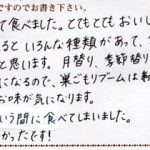 ですのでお書き下さい。
て食べました。とてもとてもおいし
るといろんな種類があって、
と思います。月替り、季節替り
になるので、巣ごもりブームは
お味が気になります。
いう間に食べてしまいました。
かったです!